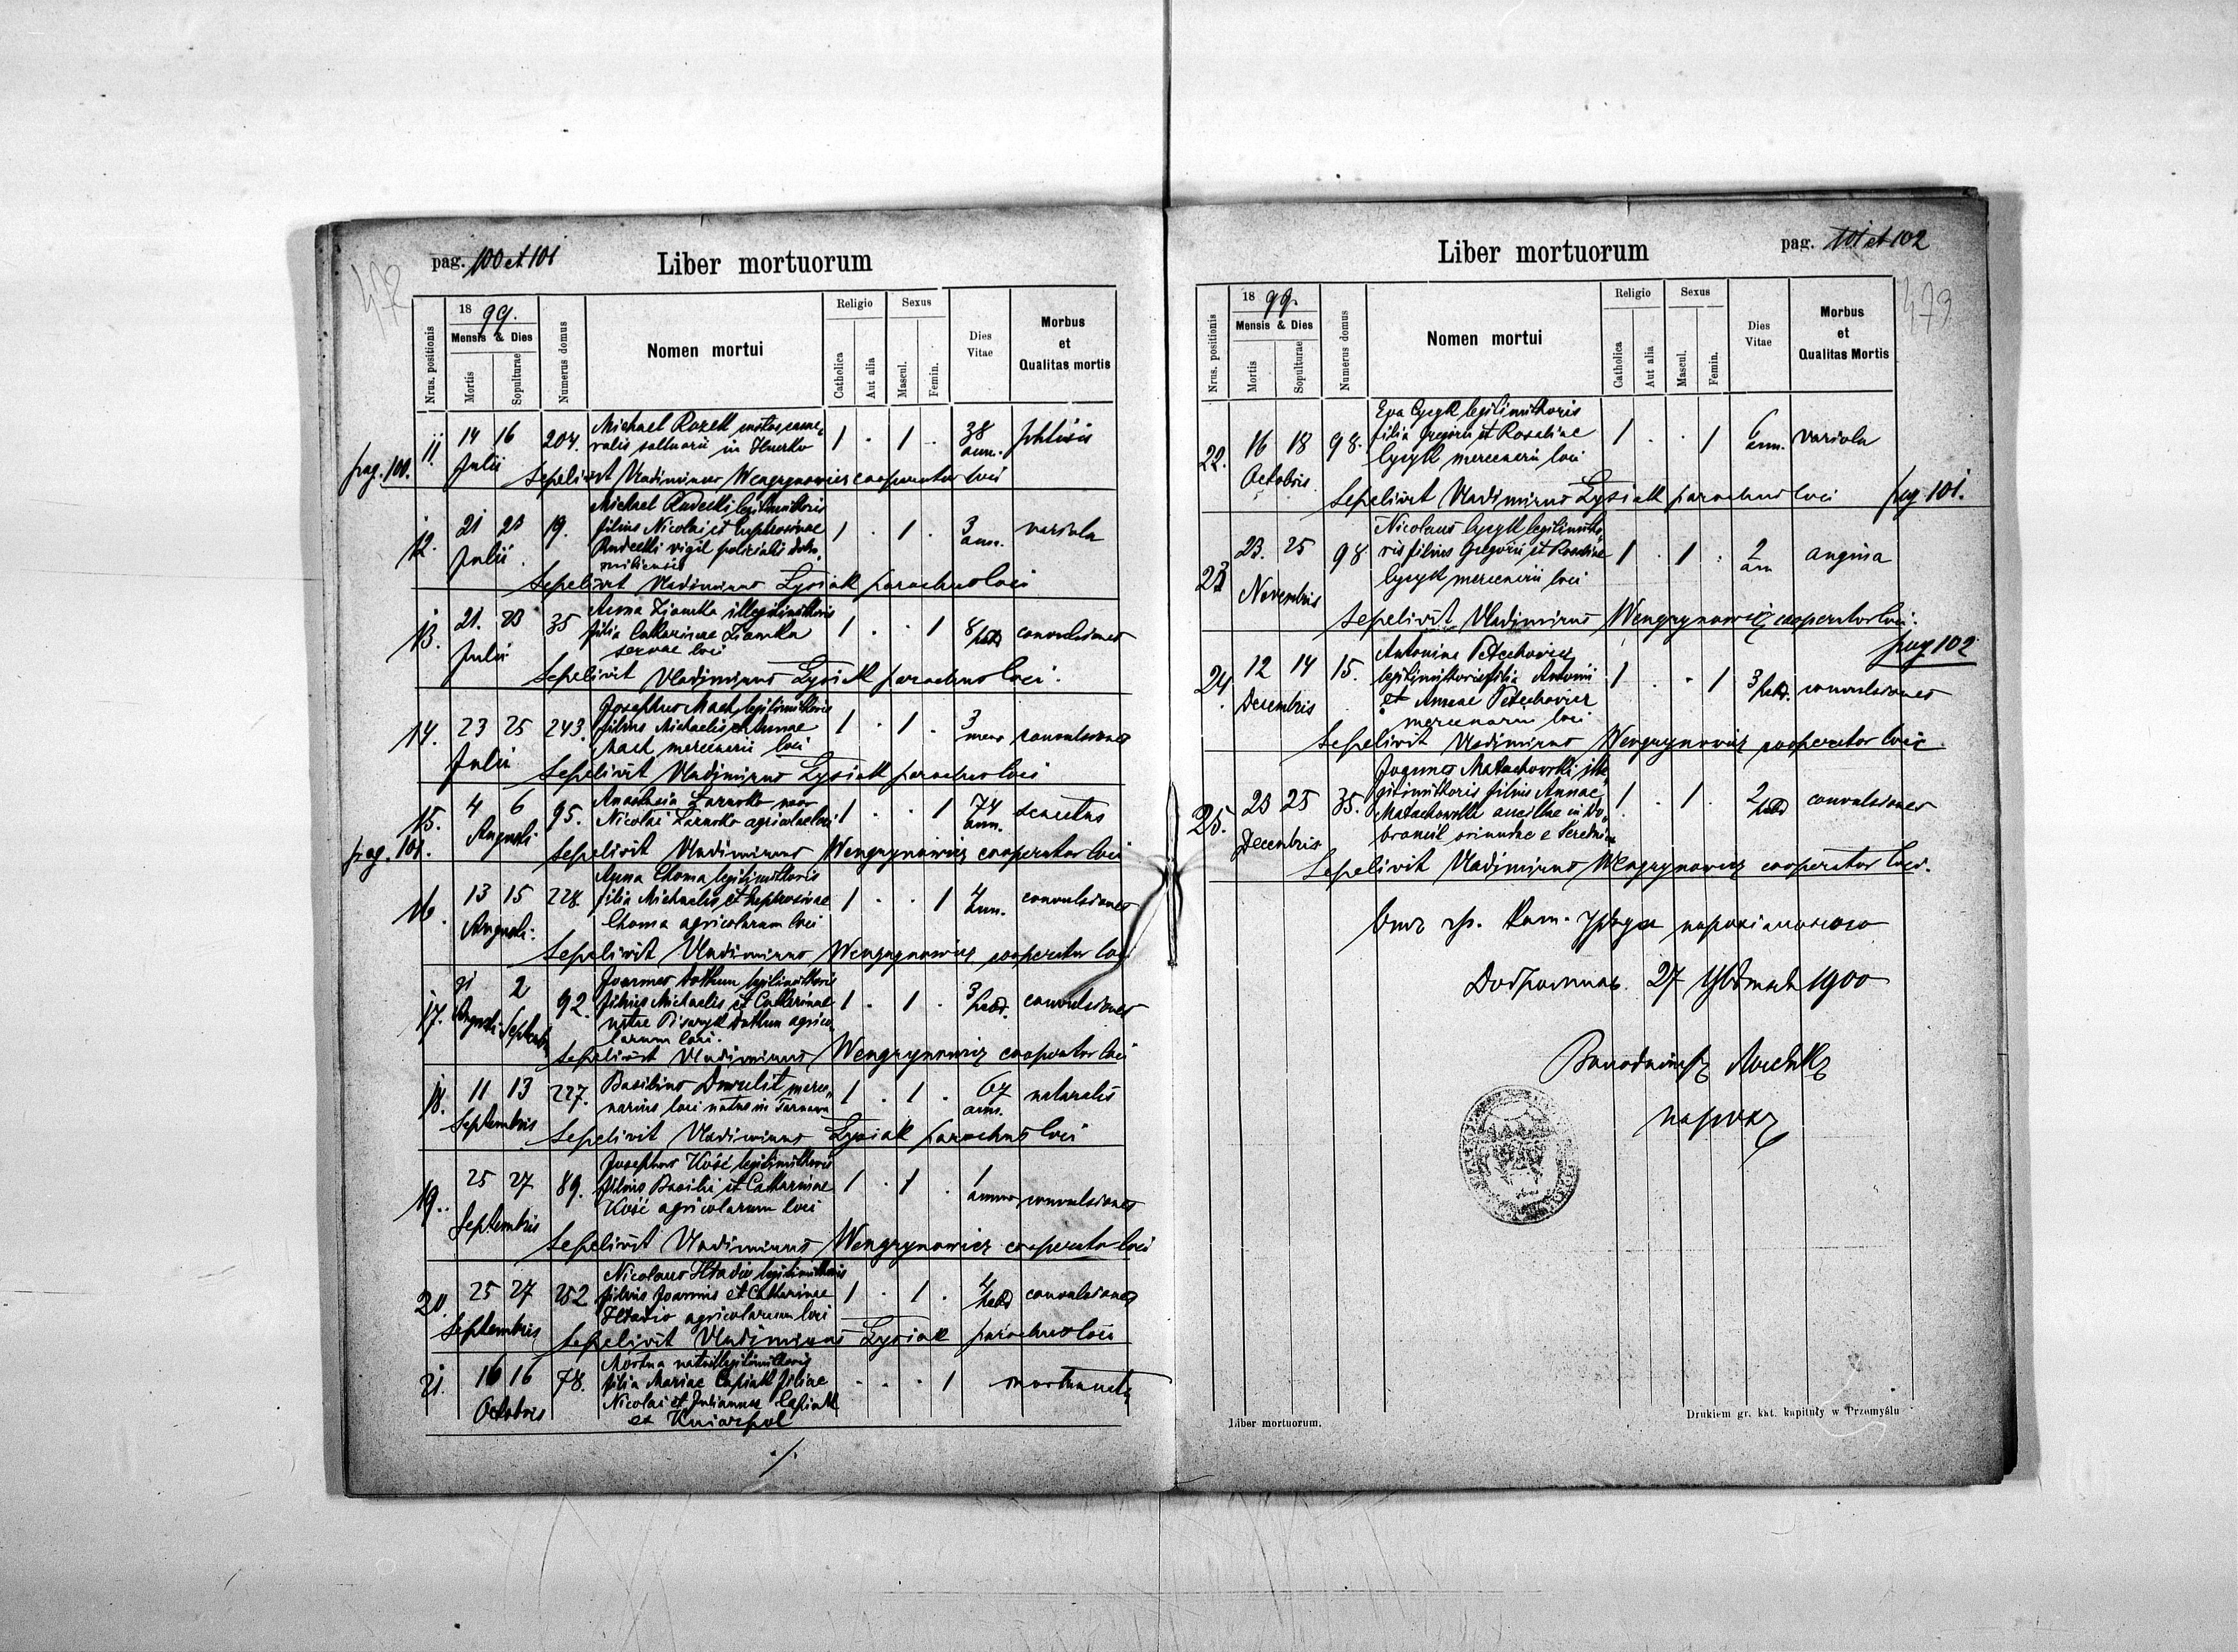 pag. 100 et 101
Liber mortuorum
472
Nrus. positionis
18 99.
Mensis & Dies
Mortis
Sepulturae
Numerus domus
Nomen mortui
Religio
Catholica
Aut alia
Sexus
Mascul.
Femin.
Dies
Vitae
Morbus
et
Qualitas mortis
pag. 100.
11. 14 16 Julii 204. Michael Rozek custos came
ralis saltuarii in Huwko 1 . 1 . 38 ann. phtisis
Sepelivit Vladimirus Wengrynowicz cooperator loci
12. 21 23 Julii 19. Michael Rudecki legitimi thoris
filius Nicolai et Euphrosinae
Rudecki vigil policialis dobro
miliensis 1 . 1 . 3 ann. variola
Sepelivit Vladimirus Łysiak parochus loci
13. 21. 23 Julii 35 Anna Ziomka illegitimi thoris
filia Catharinae Ziomka
servae loci 1 . . 1 8 hebd convulsiones
Sepelivit Vladimirus Łysiak parochus loci.
14. 23 25 Julii 243. Josephus Mach legitimi thoris
filius Michaelis et Annae
Mach mercenarii loci 1 . 1 . 3 mens convulsiones
Sepelivit Vladimirus Łysiak parochus loci
15. 4 6 Augusti 95. Anastasia uxor
Nicolai agricolae loci 1 . . 1 74 ann. senectus
pag. 101.
Sepelivit Vladimirus Wengrynowicz cooperator loci
16. 13 15 Augusti. 228. Anna Choma legitimi thoris
filia Michaelis et Euphrosinae
Choma agricolarum loci 1 . . 1 4 ann. convulsiones
Sepelivit Vladimirus Wengrynowicz cooperator loci
17. 31 Augusti 2 Septemb 92. Joannes legitimi thoris
filius Michaelis et Catharinae
natae Pisaryk agrico
larum loci. 1 . 1 . 3 hebd. convulsiones
Sepelivit Vladimirus Wengrynowicz cooperator loci
18. 11 13 Septembris 227. Basilius merce
narius loci natus in Tarnawa 1 . 1 . 67 ann. naturalis
Sepelivit Vladimirus Łysiak parochus loci
19. 25 27 Septembris 89. Josephus Kość legitimi thoris
filius Basilii et Catharinae
Kość agricolarum loci 1 . 1 . 1 annus convulsiones
Sepelivit Vladimirus Wengrynowicz cooperator loci
20. 25 27 Septembris 252 Nicolaus Hładio legitimi thoris
filius Joannis et Catharinae
Hładio agricolarum loci 1 . 1 . 4 hebd convulsiones
Sepelivit Vladimirus Łysiak parochus loci
21. 16 16 Octobris 78. Mortua nata illegitimi thoris
filia Mariae Capiak filiae
Nicolai et Juliannae Capiak
ex Kniażpol . . . 1 mortua nata
./.
Liber mortuorum
pag. 101 et 102
473
Nrus. positionis
18 99.
Mensis & Dies
Mortis
Sepulturae
Numerus domus
Nomen mortui
Religio
Catholica
Aut alia
Sexus
Mascul.
Femin.
Dies
Vitae
Morbus
et
Qualitas Mortis
22. 16 18 Octobris 98. Eva Cycyk legitimi thoris
filia Gregorii et Rosaliae
Cycyk mercenarii loci 1 . . 1 6 ann. variola
Sepelivit Vladimirus Łysiak parochus loci
pag 101.
23 23. 25 Novembris 98 Nicolaus Cycyk legitimi tho
ris filius Gregorii et Rosaliae
Cycyk mercenarii loci 1 . 1 . 2 ann angina
Sepelivit Vladimirus Wengrynowicz cooperator loci.
pag 102
24. 12 14 Decembris 15. Antonina Petechowicz
legitimi thoris filia Antonii
et Annae Petechowicz
mercenarii loci 1 . . 1 3 hebd. convulsiones
Sepelivit Vladimirus Wengrynowicz cooperator loci.
25. 23 25 Decembris 35. Joannes Małachowski ille
gitimi thoris filius Annae
Małachowska ancillae in Do
bromil oriundae e Serednica 1 . 1 . 2 hebd convulsiones
Sepelivit Vladimirus Wengrynowicz cooperator loci.
Отъ гр. кат. уряду парохіяльного
Добромиль 27 1900
парох
Liber mortuorum.
Drukiem gr. kat. kapituły w Przemyślu